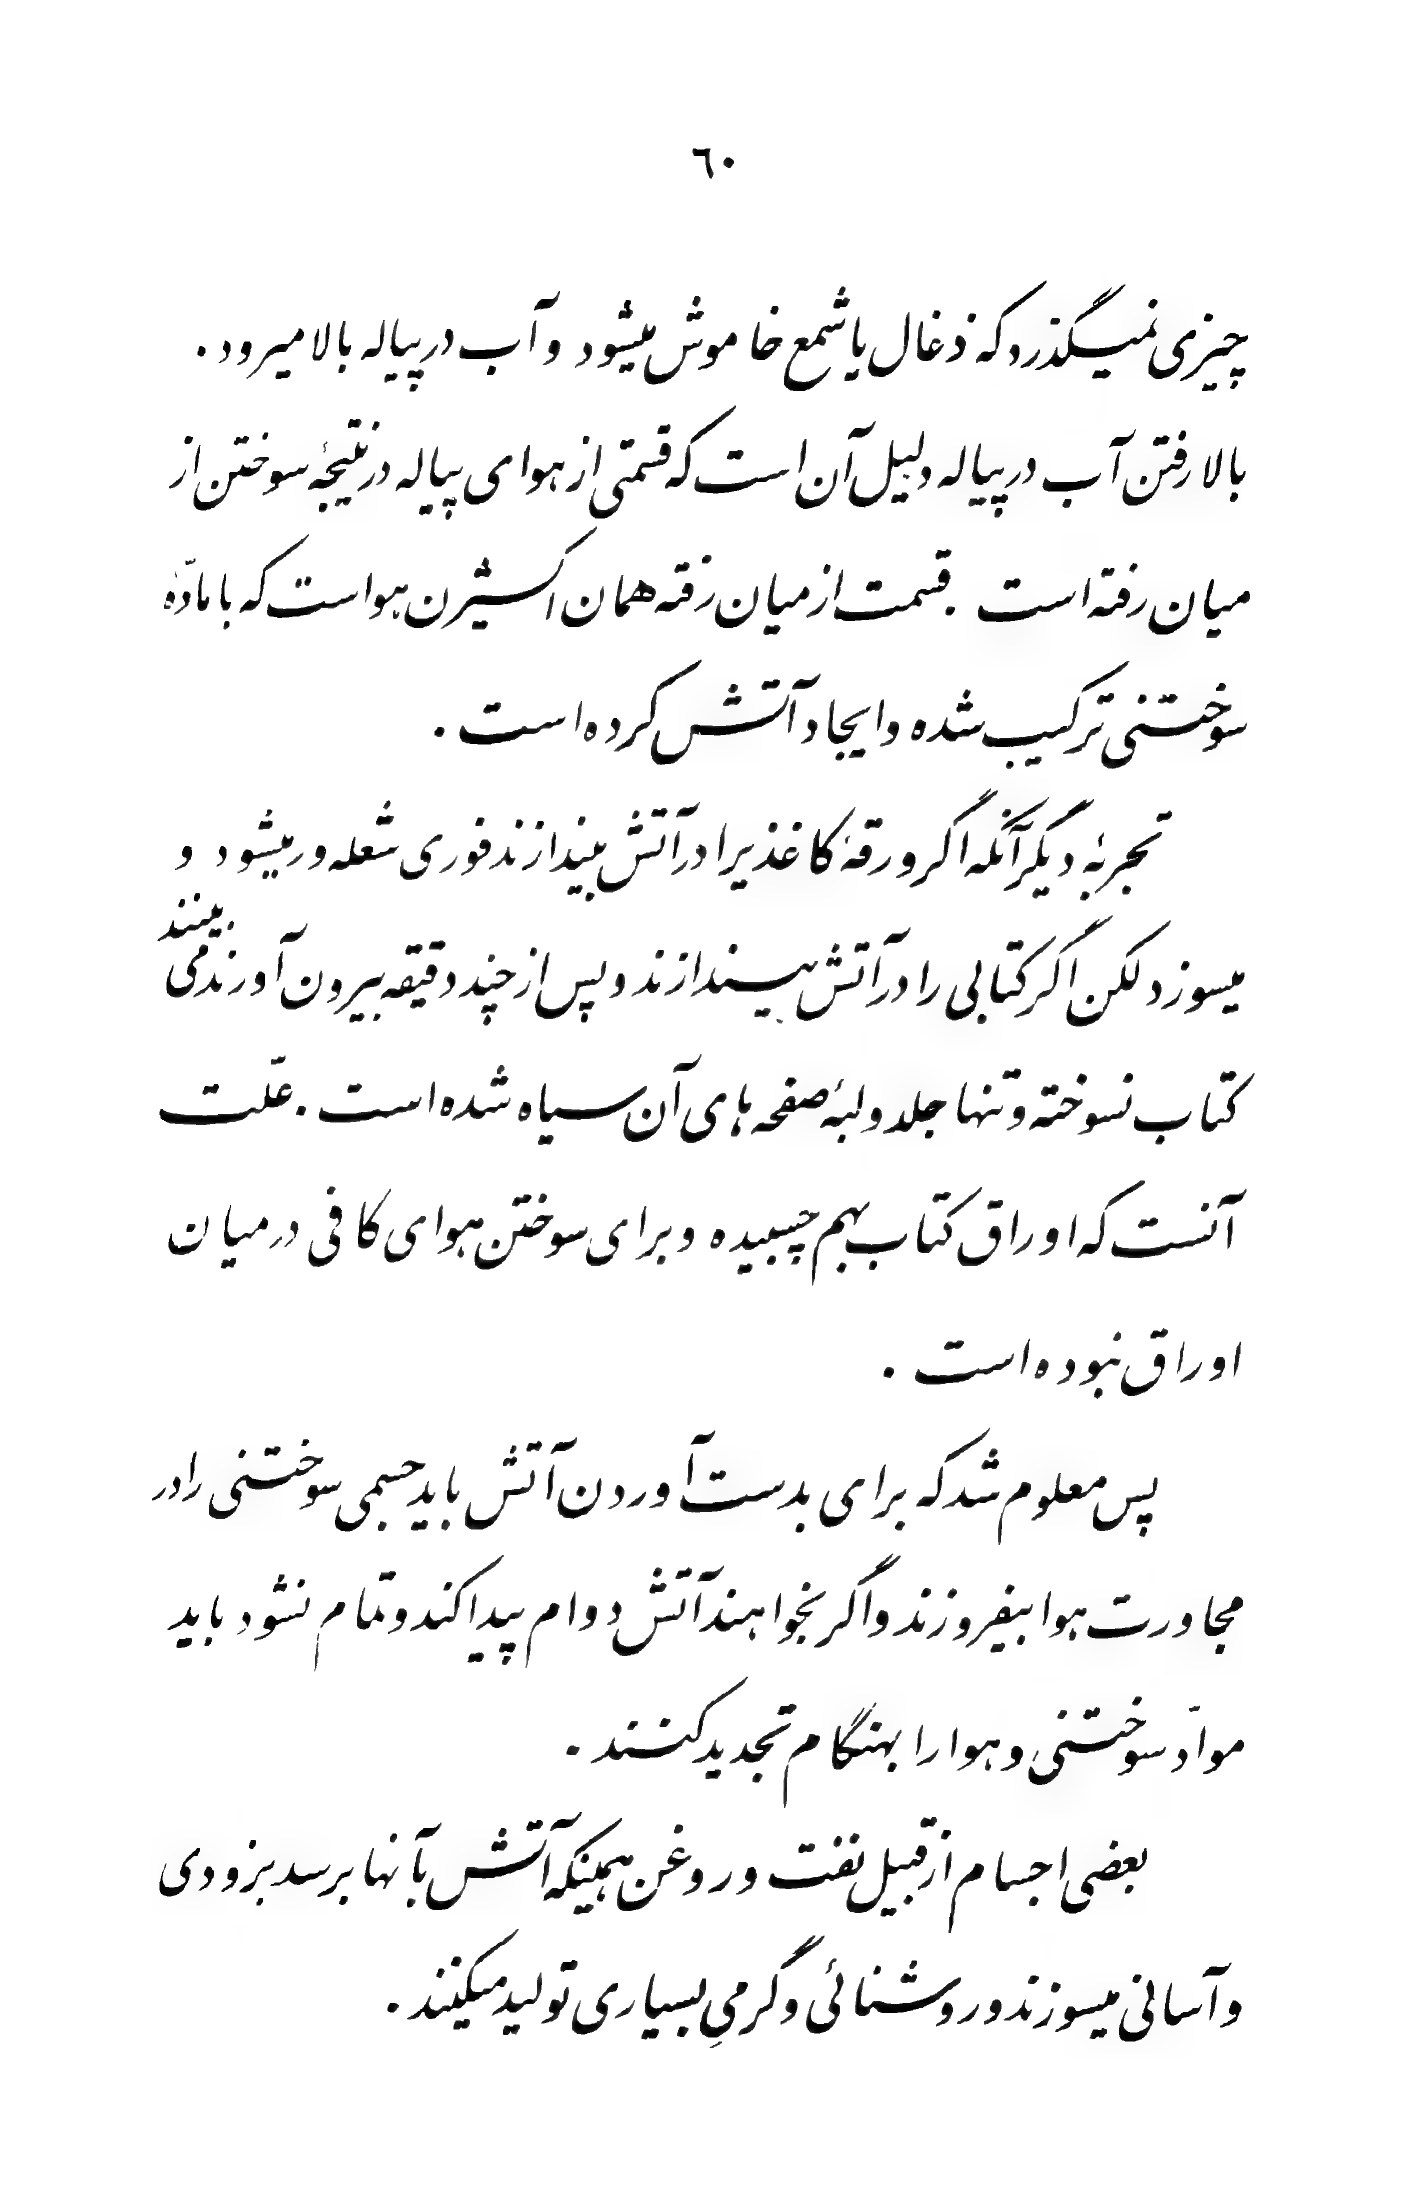 ٦٠
چیزی نمیگذرد که ذغال یا شمع خاموش میشود و آب در پیاله بالا میرود .
بالا رفتن آب در پیاله دلیل آن است که قسمتی از هوای پیاله در نتیجهٔ سوختن از
میان رفته است . قسمت از میان رفته همان اکسیژن هواست که با مادّهٔ
سوختنی ترکیب شده و ایجاد آتش کرده است .
تجربهٔ دیگر آنکه اگر ورقهٔ کاغذیرا در آتش بیندازند فوری شعله ور میشود و
میسوزد لکن اگر کتابی را در آتش بیندازند و پس از چند دقیقه بیرون آورند می بینند
کتاب نسوخته و تنها جلد و لبهٔ صفحه های آن سیاه شده است . علّت
آنست که اوراق کتاب بهم چسبیده و برای سوختن هوای کافی در میان
اوراق نبوده است .
پس معلوم شد که برای بدست آوردن آتش باید جسمی سوختنی را در
مجاورت هوا بیفروزند و اگر بخواهند آتش دوام پیدا کند و تمام نشود باید
موادّ سوختنی و هوا را بهنگام تجدید کنند .
بعضی اجسام از قبیل نفت و روغن همینکه آتش بآنها برسد بزودی
و آسانی میسوزند و روشنائی و گرمیِ بسیاری تولید میکنند .